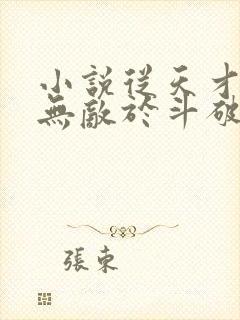 小說從天才
無敵於斗破
張東